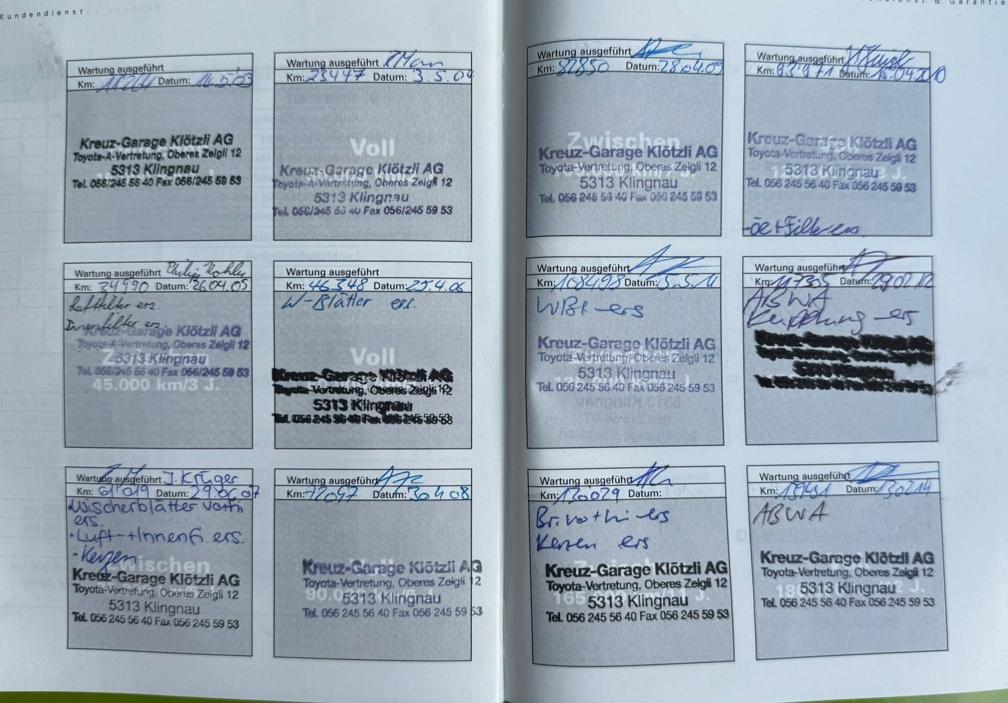 Kundendienst
Wartung ausgeführt
Km: Datum: 16.5.03
Kreuz-Garage Klötzli AG
Toyota-A-Vertretung, Oberes Zelgli 12
5313 Klingnau
Tel. 056/245 56 40 Fax 056/245 59 53
Wartung ausgeführt
Km: 23447 Datum: 3.5.04
Voll
Kreuz-Garage Klötzli AG
Toyota-A-Vertretung, Oberes Zelgli 12
5313 Klingnau
Tel. 056/245 56 40 Fax 056/245 59 53
Wartung ausgeführt
Km: 34990 Datum: 26.04.05
Luftfilter ers.
Innenfilter ers.
Kreuz-Garage Klötzli AG
Toyota-A-Vertretung, Oberes Zelgli 12
5313 Klingnau
Tel. 056/245 56 40 Fax 056/245 59 53
45.000 km/3 J.
Wartung ausgeführt
Km: 46348 Datum: 25.4.06
W-Blätter ers.
Voll
Kreuz-Garage Klötzli AG
Toyota-Vertretung, Oberes Zelgli 12
5313 Klingnau
Tel. 056 245 56 40 Fax 056 245 59 53
Wartung ausgeführt J. Krüger
Km: 61'019 Datum: 29.06.07
- Wischerblätter vorn
ers.
- Luft-+Innenfi. ers.
- Kerzen
Zwischen
Kreuz-Garage Klötzli AG
Toyota-Vertretung, Oberes Zelgli 12
5313 Klingnau
Tel. 056 245 56 40 Fax 056 245 59 53
Wartung ausgeführt
Km: 72097 Datum: 30.4.08
Voll
Kreuz-Garage Klötzli AG
Toyota-Vertretung, Oberes Zelgli 12
5313 Klingnau
Tel. 056 245 56 40 Fax 056 245 59 53
Wartung ausgeführt
Km: 82850 Datum: 28.04.09
Zwischen
Kreuz-Garage Klötzli AG
Toyota-Vertretung, Oberes Zelgli 12
5313 Klingnau
Tel. 056 245 56 40 Fax 056 245 59 53
Wartung ausgeführt
Km: 93'971 Datum: 15.04.2010
Kreuz-Garage Klötzli AG
Toyota-Vertretung, Oberes Zelgli 12
5313 Klingnau
Tel. 056 245 56 40 Fax 056 245 59 53
- Öl+Filter ers.
Wartung ausgeführt
Km: Datum: 5.5.11
WBl. ers
Kreuz-Garage Klötzli AG
Toyota-Vertretung, Oberes Zelgli 12
5313 Klingnau
Tel. 056 245 56 40 Fax 056 245 59 53
Wartung ausgeführt
Km: Datum:
ABWA
Kupplung ers
Kreuz-Garage Klötzli AG
5313 Klingnau
Wartung ausgeführt
Km: 130029 Datum:
ers
Kerzen ers
Kreuz-Garage Klötzli AG
Toyota-Vertretung, Oberes Zelgli 12
5313 Klingnau
Tel. 056 245 56 40 Fax 056 245 59 53
Wartung ausgeführt
Km: Datum:
ABWA
Kreuz-Garage Klötzli AG
Toyota-Vertretung, Oberes Zelgli 12
5313 Klingnau
Tel. 056 245 56 40 Fax 056 245 59 53